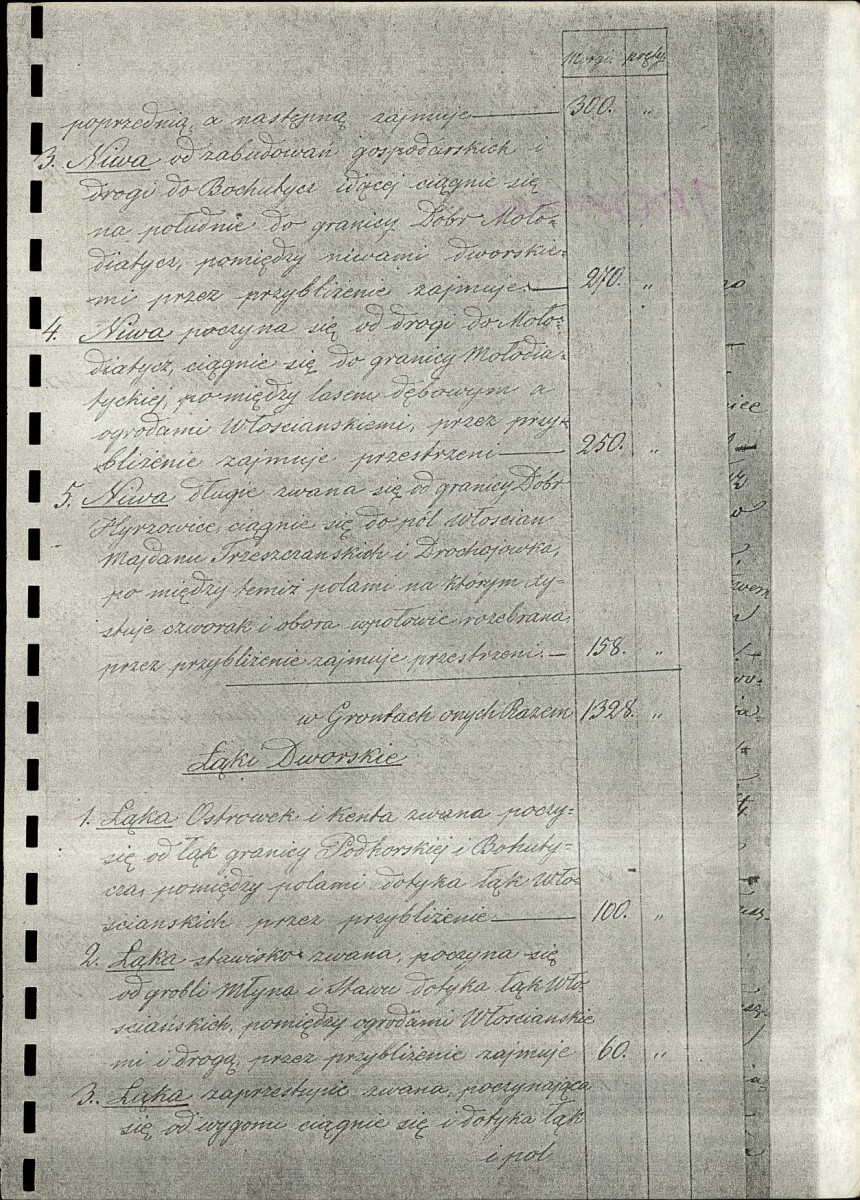 Morgi. pręty.
poprzednią, a następną zajmuje 300. "
3. Niwa od zabudowań gospodarskich i
drogi do Bochutycz idącej ciągnie się
na południe do granicy Dóbr Moło-
diatycz, pomiędzy niwami dworskie-
mi przez przybliżenie zajmuje 270. "
4. Niwa poczyna się od drogi do Moło-
diatycz, ciągnie się do granicy Mołodia-
tyckiej, po między lasem dębowym a
ogrodami Włosciańskiemi, przez przy-
bliżenie zajmuje przestrzeni 250. "
5. Niwa długie zwana się od granicy Dóbr
Hyrzowice, ciągnie się do pól Włoscian
Majdanu Trzeszczańskich i Drochojowka,
po między temiż polami na którym xy-
stuje czworak i obora wpołowie rozebrana,
przez przybliżenie zajmuje przestrzeni. 158. "
w Grontach onych Razem 1328. "
Łąki Dworskie
1. Łąka Ostrowek i Kenta zwana poczy-
się od łąk granicy Podhorskiej i Bohuty-
cza, pomiędzy polami dotyka łąk Wło-
scianskich przez przybliżenie 100. "
2. Łąka stawisko zwana, poczyna się
od grobli Młyna i Stawu dotyka łąk Wło
sciańskich, pomiędzy ogrodami Włoscianskie
mi i drogą, przez przybliżenie zajmuje 60. "
3. Łąka zaprzestupie zwana, poczynająca
się od wygonu ciągnie się i dotyka łąk
i pol